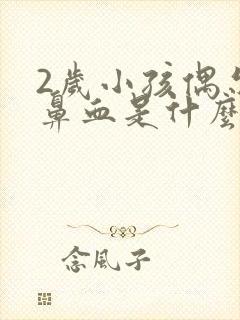 2歲小孩偶
鼻血是什麼
念風子